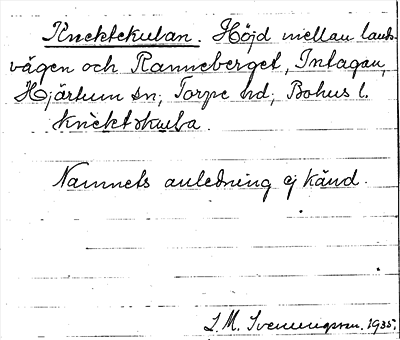 Knektekulan. Höjd mellan lands-
vägen och Ranneberget, Intagan,
Hjärtum sn, Torpe hd, Bohus l.
knèktəkuḷa.
Namnets anledning ej känd.
S. M. Svenungsson. 1935.